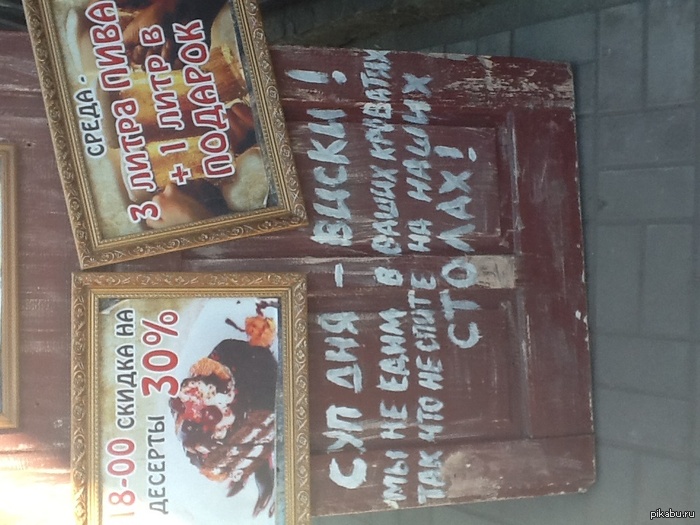 СРЕДА -
3 ЛИТРА ПИВА
+ 1 ЛИТР В
ПОДАРОК
18-00 СКИДКА НА
ДЕСЕРТЫ 30%
СУП ДНЯ - ВИСКИ!
МЫ НЕ ЕДИМ В ВАШИХ КРОВАТЯХ
ТАК ЧТО НЕ СПИТЕ НА НАШИХ
СТОЛАХ!
pikabu.ru